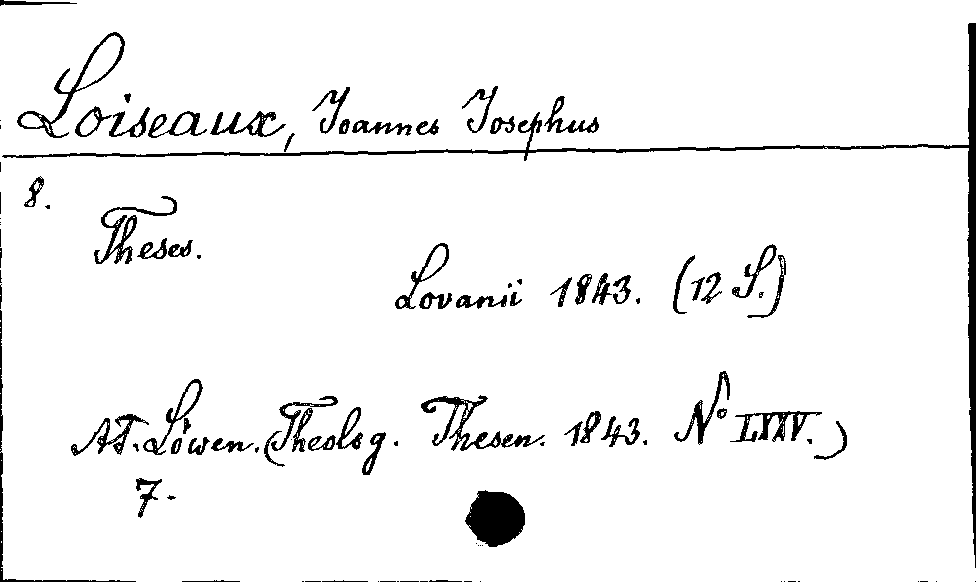 Loiseaux, Joannes Josephus
8.
Theses.
Lovanii 1843. (12 S.)
AT. Löwen. (Theolog. Thesen. 1843. No LXXV.)
7.